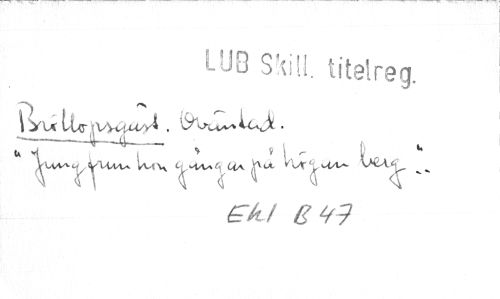 LUB Skill. titelreg.
Bröllopsgäst. Oväntad.
"Jungfrun hon gångar på högan berg"..
Ekl B 47